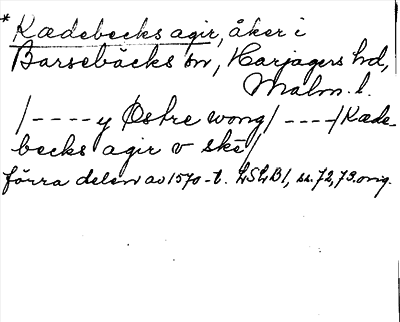 * Kædebecks agir, åker i
Barsebäcks sn, Harjagers hd,
Malm. l.
/ - - - - y Østre wong / - - - - / Kæde-
becks agir v skē /
förra delen av 1570-t. LSLB1, ss. 72, 73. orig.